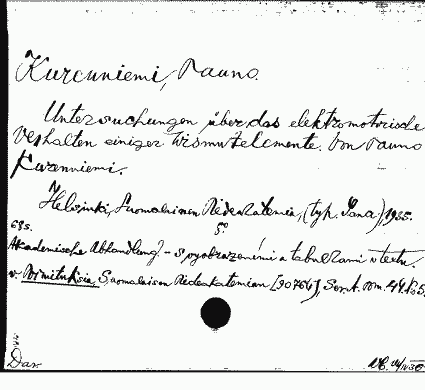 Kurenniemi, Pauno.
Untersuchungen über das elektromotorische
Verhalten einiger Wismutelemente. Von Pauno
Kurenniemi.
Helsinki, Suomalainen Tiedeakatemia, (typ. Sana), 1935.
68s. 8°
Akademische Abhandlung. - s vyobrazeními a tabulkami v textu.
v. Toimituksia, Suomalaisen Tiedeakatemian [90764], Ser. A. tom. 44. No 5.
Dar.